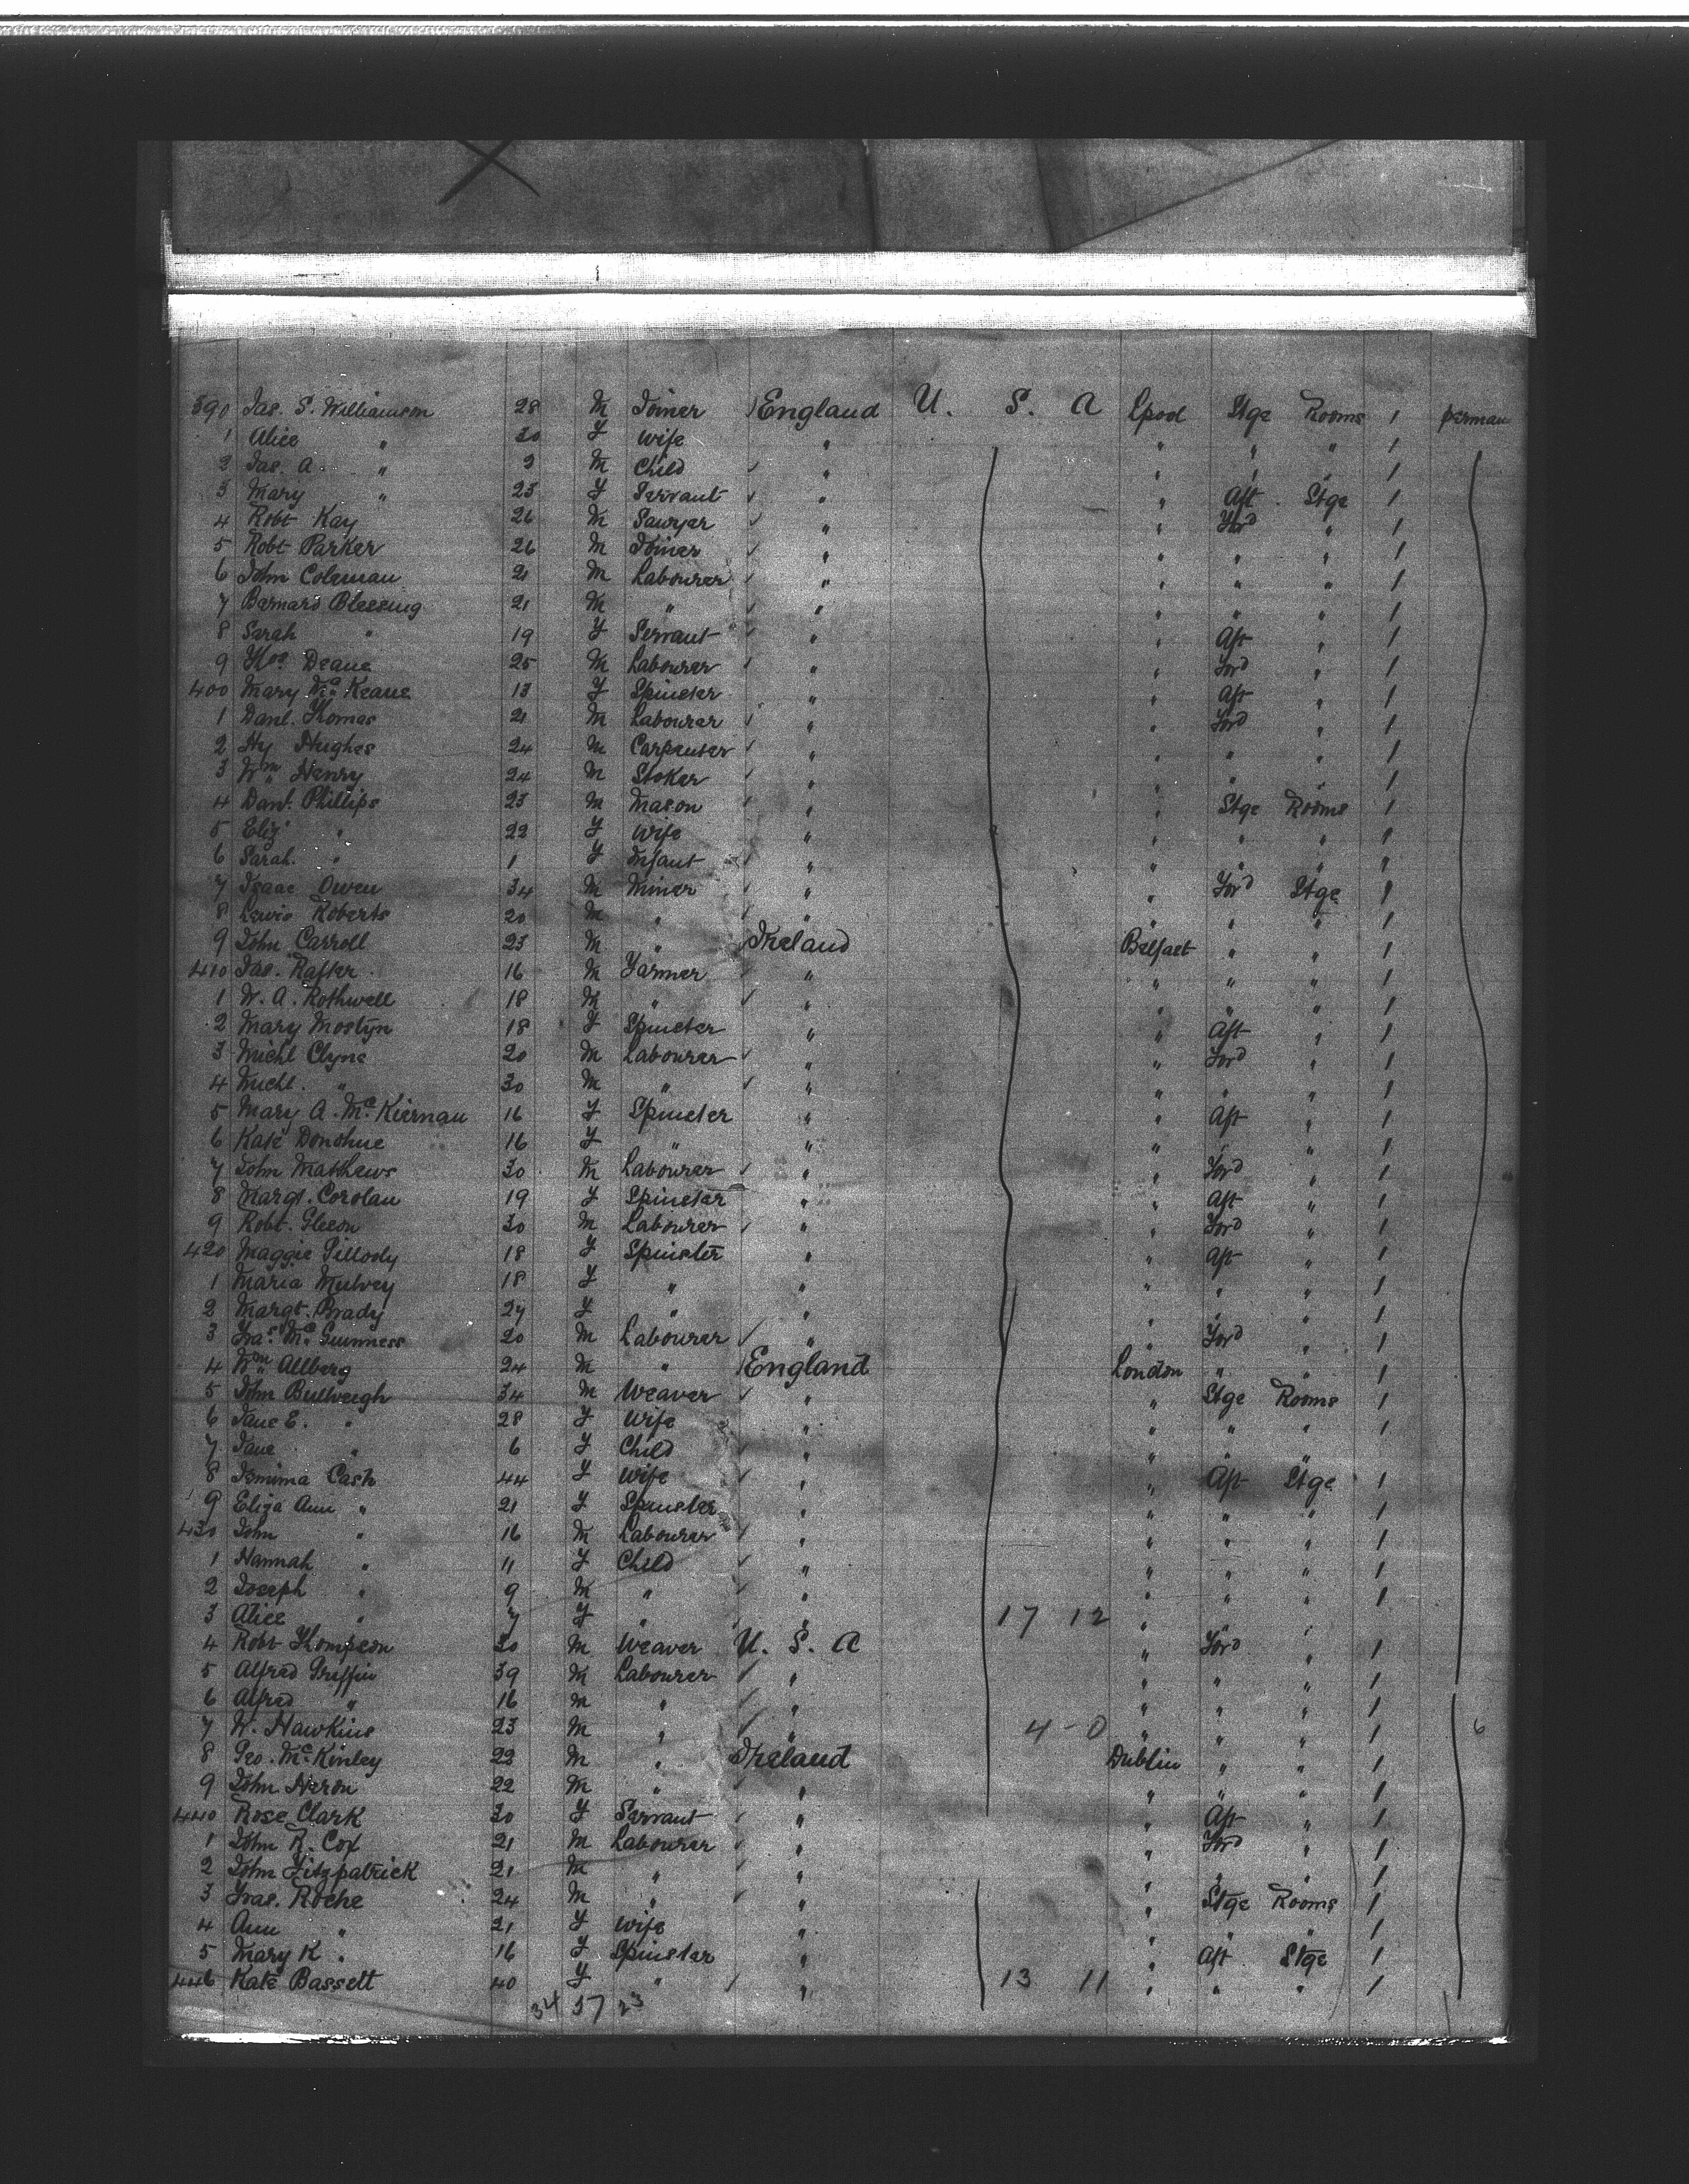 390 Jas. S. Williamson 28 M Joiner England U. S. A Lpool Stge Rooms 1 perman
1 Alice " 30 F Wife " " " " 1
2 Jas. A. " 3 M Child " " " " 1
3 Mary " 23 F Servant " " Aft Stge 1
4 Robt Kay 26 M Sawyer " " Ford " 1
5 Robt Parker 26 M Joiner " " " " 1
6 John Coleman 21 M Labourer " " " " 1
7 Barnard Blessing 21 M " " " " " 1
8 Sarah " 19 F Servant " " Aft " 1
9 Thos Deane 25 M Labourer " " Ford " 1
400 Mary McKeane 13 F Spinster " " Aft " 1
1 Danl. Thomas 21 M Labourer " " Ford " 1
2 Hy Hughes 24 M Carpenter " " " " 1
3 Wm Henry 24 M Stoker " " " " 1
4 Danl. Phillips 23 M Mason " " Stge Rooms 1
5 Eliz " 22 F Wife " " " " 1
6 Sarah " 1 F Infant " " " " "
7 Isaac Owen 34 M Miner " " Ford Stge 1
8 Lewis Roberts 20 M " " " " " 1
9 John Carroll 23 M " Ireland Belfast " " 1
410 Jas. Rafter 16 M Farmer " " " " 1
1 W. A. Rothwell 18 M " " " " " 1
2 Mary Mostyn 18 F Spinster " " Aft " 1
3 Michl Clyne 20 M Labourer " " Ford " 1
4 Michl. " 30 M " " " " " 1
5 Mary A. McKiernan 16 F Spinster " " Aft " 1
6 Kate Donohue 16 F " " " " " 1
7 John Matthews 30 M Labourer " " Ford " 1
8 Margt. Corolan 19 F Spinster " " Aft " 1
9 Robt. Gleeson 30 M Labourer " " Ford " 1
420 Maggie Gillody 18 F Spinster " " Aft " 1
1 Maria Mulvey 18 F " " " " " 1
2 Margt. Brady 27 F " " " " " 1
3 Fras McGuinness 20 M Labourer " " Ford " 1
4 Wm Allberg 24 M " England London " " 1
5 John Bulleigh 34 M Weaver " " Stge Rooms 1
6 Jane E. " 28 F Wife " " " " 1
7 Jane " 6 F Child " " " " 1
8 Jemima Cash 44 F Wife " " Aft Stge 1
9 Eliza Ann " 21 F Spinster " " " " 1
430 John " 16 M Labourer " " " " 1
1 Hannah " 11 F Child " " " " 1
2 Joseph " 9 M " " " " " 1
3 Alice " 7 F " " 17 12 " " "
4 Robt Thompson 30 M Weaver U. S. A " Ford " 1
5 Alfred Griffin 39 M Labourer " " " " 1
6 Alfred " 16 M " " " " " 1
7 W. Hawkins 23 M " " 4-0 " " " 1 6
8 Geo. McKinley 22 M " Ireland Dublin " " 1
9 John Heron 22 M " " " " " 1
440 Rose Clark 30 F Servant " " Aft " 1
1 John R. Cox 21 M Labourer " " Ford " 1
2 John Fitzpatrick 21 M " " " " " 1
3 Fras. Roche 24 M " " " Stge Rooms 1
4 Ann " 21 F Wife " " " " 1
5 Mary K " 16 F Spinster " " Aft Stge 1
446 Kate Bassett 40 F " " 13 11 " " " 1
34 57 23